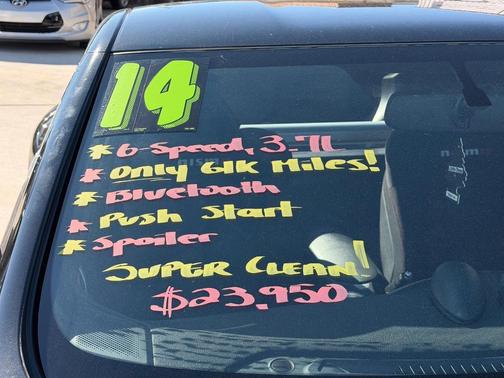 14
* 6-Speed, 3.7L
* Only 61k Miles!
* Bluetooth
* Push Start
* Spoiler
Super Clean!
$23,950